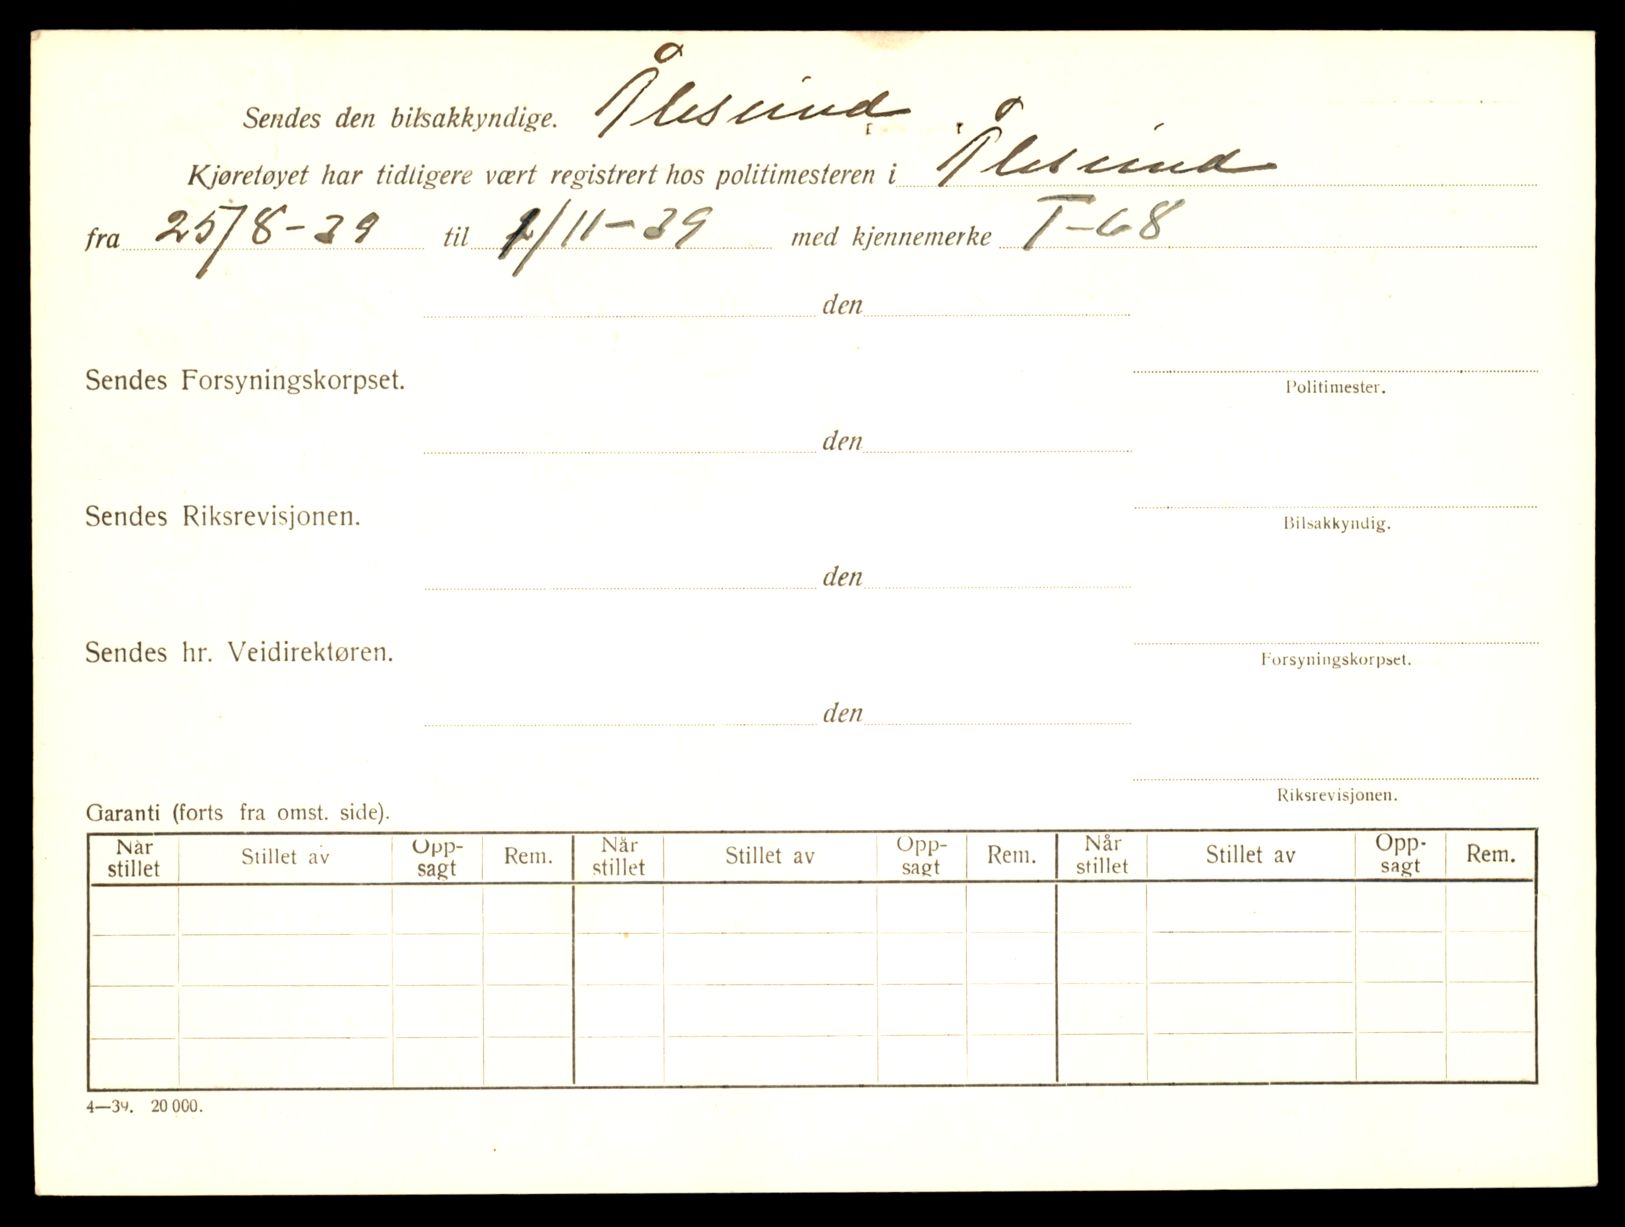 Sendes den bilsakkyndige. Ålesund
Kjøretøyet har tidligere vært registrert hos politimesteren i Ålesund
fra 25/8-39 til 1/11-39 med kjennemerke T-68
den
Sendes Forsyningskorpset.
Politimester.
den
Sendes Riksrevisjonen.
Bilsakkyndig.
den
Sendes hr. Veidirektøren.
Forsyningskorpset.
den
Riksrevisjonen.
Garanti (forts fra omst. side).
Når stillet Stillet av Opp-sagt Rem. Når stillet Stillet av Opp-sagt Rem. Når stillet Stillet av Opp-sagt Rem.
4—39. 20 000.